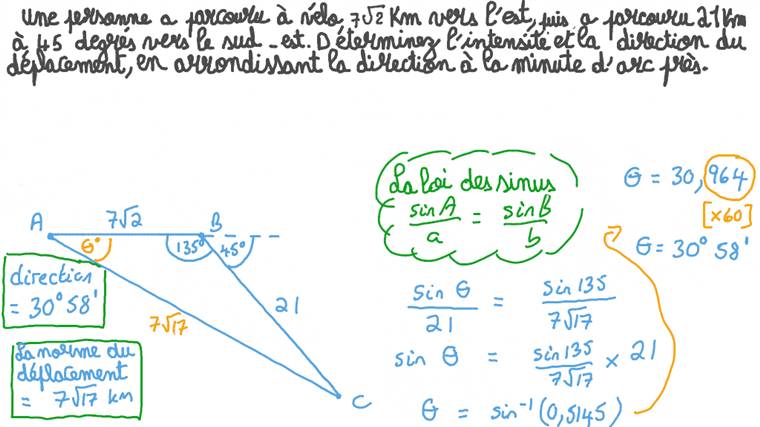 Une personne a parcouru à vélo 7√2 Km vers l'est, puis a parcouru 21 Km
à 45 degrés vers le sud-est. Déterminez l'intensité et la direction du
déplacement, en arrondissant la direction à la minute d'arc près.
A 7√2 B
θ° 135° 45°
21
7√17
C
direction
= 30° 58'
La norme du
déplacement
= 7√17 km
La loi des sinus
sin A / a = sin B / b
sin θ / 21 = sin 135 / 7√17
sin θ = sin 135 / 7√17 × 21
θ = sin⁻¹(0,5145)
θ = 30,964
[×60]
θ = 30° 58'